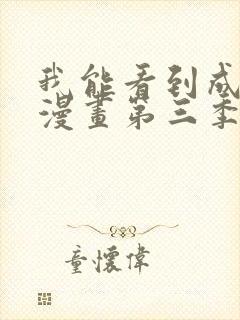 我能看到成
漫畫第三季
童懷偉